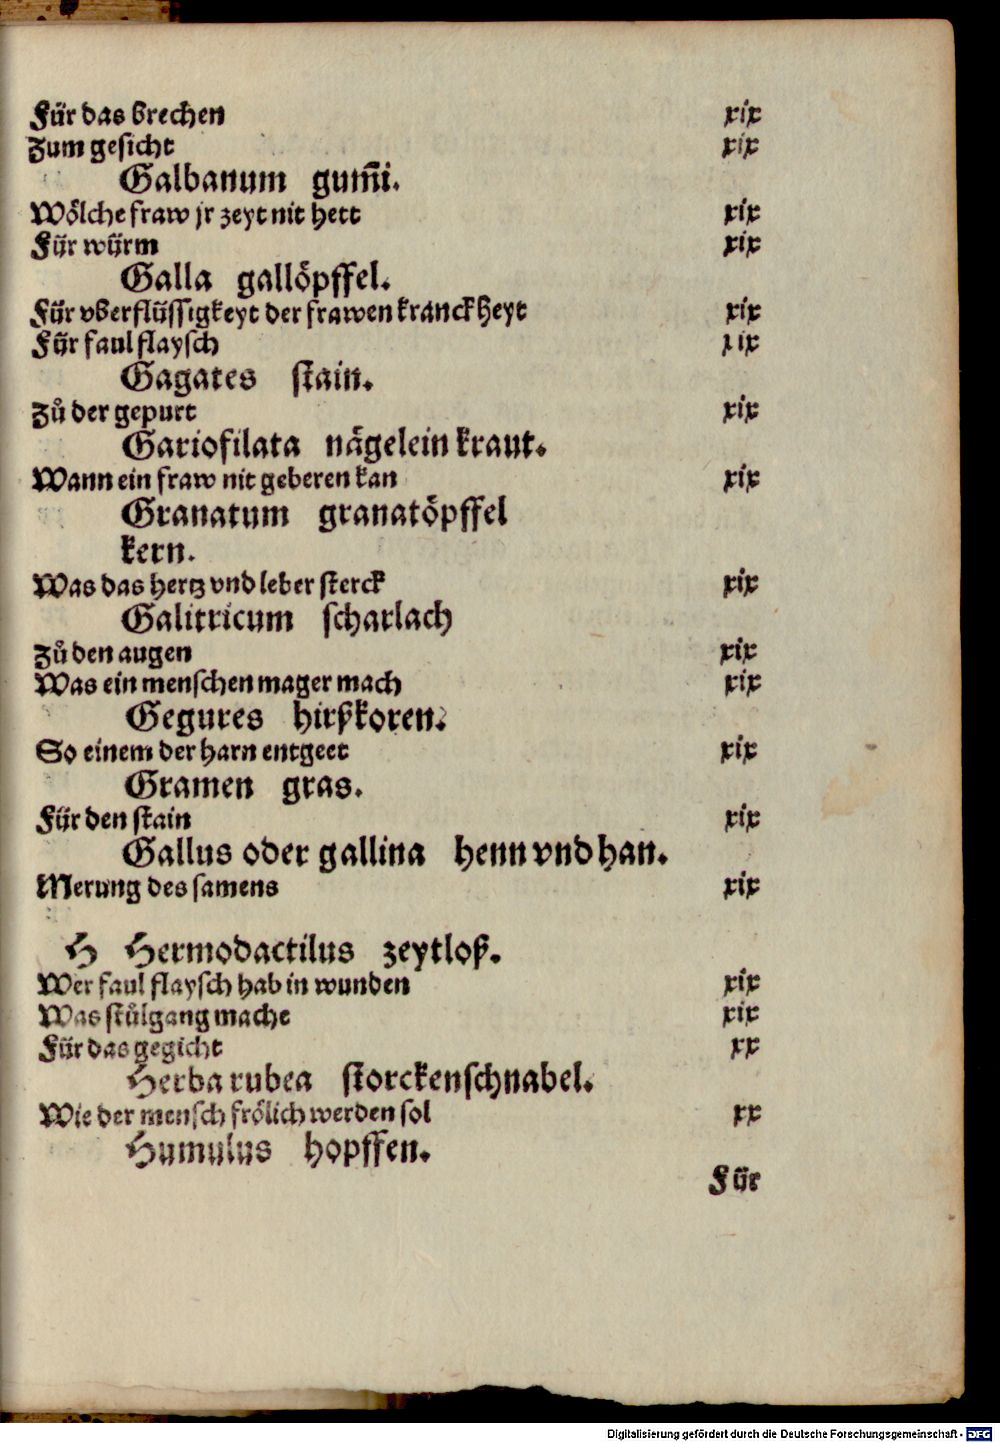 Für das brechen xix
Zum gesicht xix
Galbanum gum̃i.
Wölche fraw jr zeyt nit hett xix
Für würm xix
Galla gallöpffel.
Für vberflüssigkeyt der frawen kranckheyt xix
Für faul flaysch xix
Gagates stain.
Zů der gepurt xix
Gariofilata nägelein kraut.
Wann ein fraw nit geberen kan xix
Granatum granatöpffel
kern.
Was das hertz vnd leber sterck xix
Galitricum scharlach
Zů den augen xix
Was ein menschen mager mach xix
Gegures hirßkoren.
So einem der harn entgeet xix
Gramen gras.
Für den stain xix
Gallus oder gallina henn vnd han.
Merung des samens xix
H Hermodactilus zeytloß.
Wer faul flaysch hab in wunden xix
Was stůlgang mache xix
Für das gegicht xx
Herba rubea storckenschnabel.
Wie der mensch frölich werden sol xx
Humulus hopffen.
Für
Digitalisierung gefördert durch die Deutsche Forschungsgemeinschaft - DFG